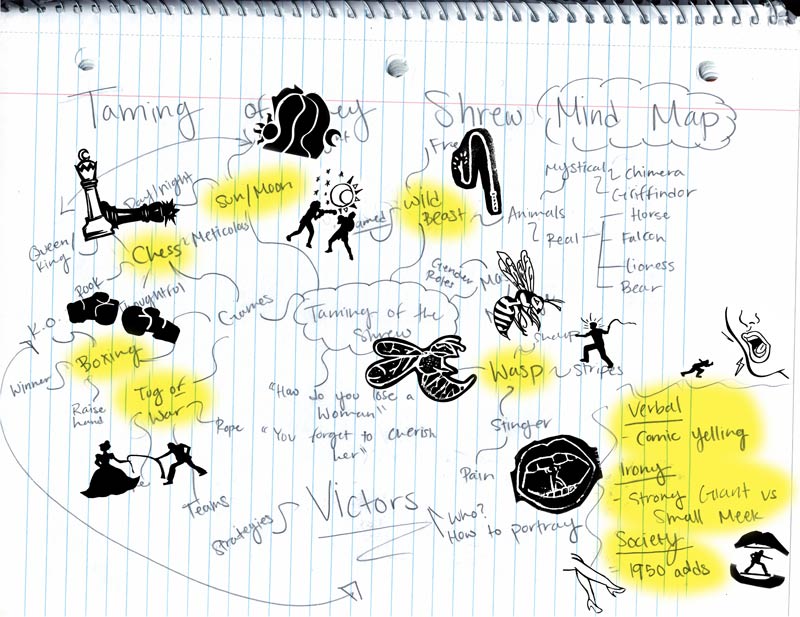 Taming of Shrew Mind Map
Day/night
Sun/Moon
Wild
Beast
Mystical
Chimera
Griffindor
Animals
Real
Horse
Falcon
Lioness
Bear
Queen/
King
Chess
Meticolas
Gender
Roles
Rook
Games
Taming of the
Shrew
K.O.
Boxing
Winner
Raise
hand
Tug of
War
Rope
"How do you lose a
Woman"
"You forget to cherish
her"
Wasp
Stripes
Stinger
Pain
Teams
Strategies
Victors
Who?
How to portray
Verbal
- Comic yelling
Irony
- Strong Giant vs
Small Meek
Society
- 1950 adds